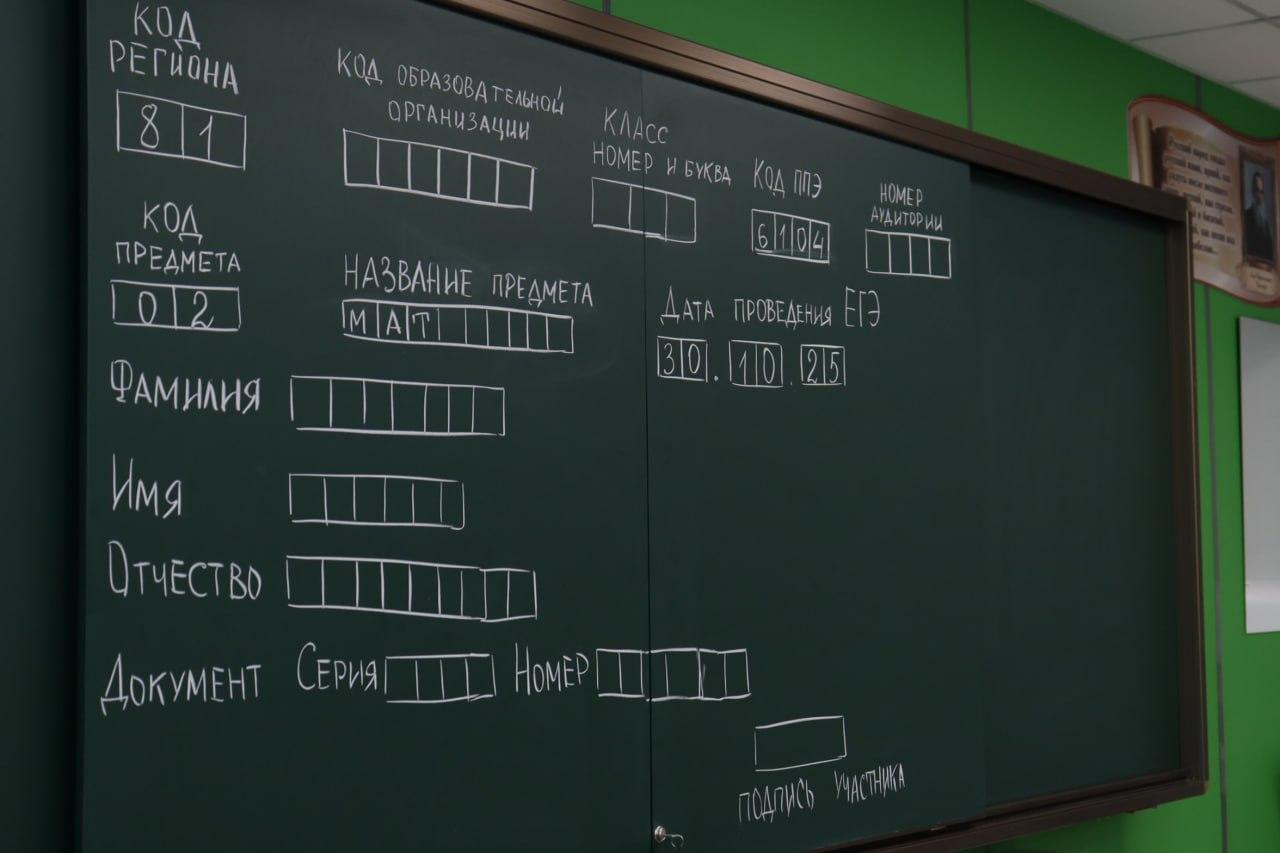 КОД
РЕГИОНА
81
КОД ОБРАЗОВАТЕЛЬНОЙ
ОРГАНИЗАЦИИ
КЛАСС
НОМЕР И БУКВА
КОД ППЭ
6104
НОМЕР
АУДИТОРИИ
КОД
ПРЕДМЕТА
02
НАЗВАНИЕ ПРЕДМЕТА
МАТ
ДАТА ПРОВЕДЕНИЯ ЕГЭ
30.10.25
ФАМИЛИЯ
ИМЯ
ОТЧЕСТВО
ДОКУМЕНТ СЕРИЯ НОМЕР
ПОДПИСЬ УЧАСТНИКА